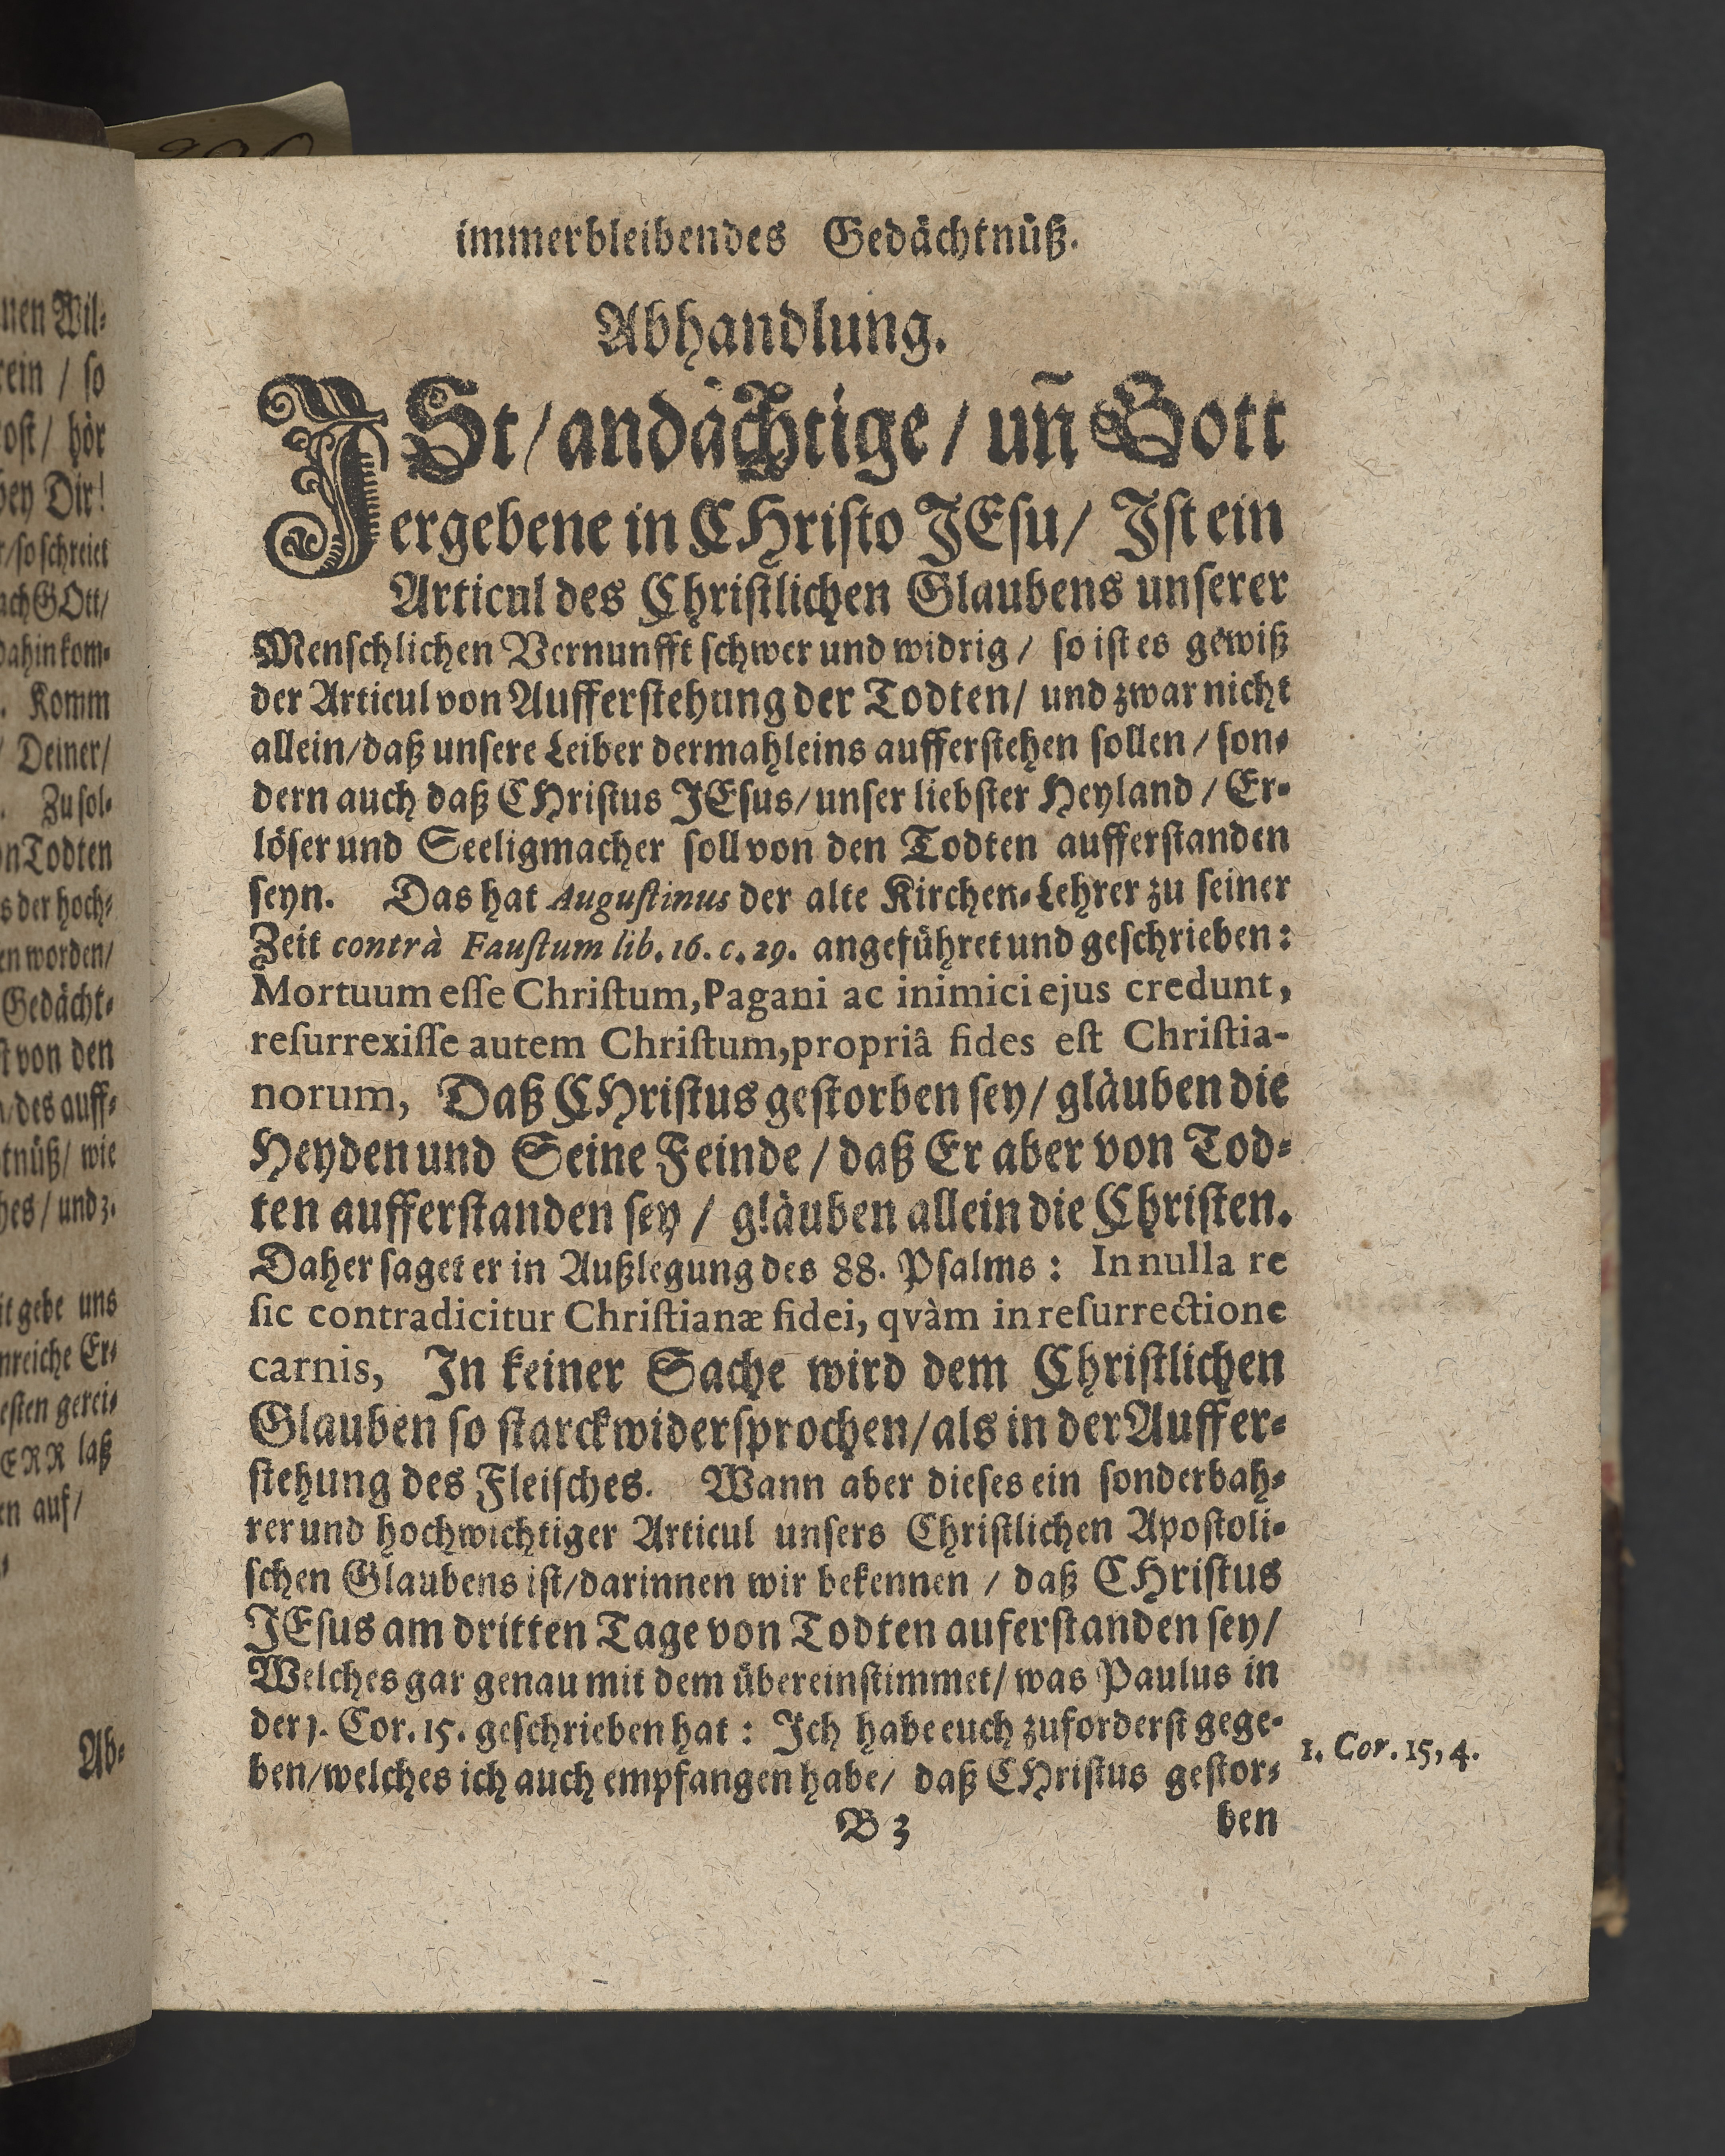 immerbleibendes Gedächtnüß.
Abhandlung.
JSt / andächtige / uñ Gott
ergebene in CHristo JEsu / Jst ein
Articul des Christlichen Glaubens unserer
Menschlichen Vernunfft schwer und widrig / so ist es gewiß
der Articul von Aufferstehung der Todten / und zwar nicht
allein / daß unsere Leiber dermahleins aufferstehen sollen / son-
dern auch daß CHristus JEsus / unser liebster Heyland / Er-
löser und Seeligmacher soll von den Todten aufferstanden
seyn. Das hat Augustinus der alte Kirchen-Lehrer zu seiner
Zeit contrà Faustum lib. 16. c. 29. angeführet und geschrieben:
Mortuum esse Christum, Pagani ac inimici ejus credunt,
resurrexisse autem Christum, propriâ fides est Christia-
norum, Daß CHristus gestorben sey / gläuben die
Heyden und Seine Feinde / daß Er aber von Tod-
ten aufferstanden sey / gläuben allein die Christen.
Daher saget er in Außlegung des 88. Psalms: In nulla re
sic contradicitur Christianæ fidei, qvàm in resurrectione
carnis, In keiner Sache wird dem Christlichen
Glauben so starck widersprochen / als in der Auffer-
stehung des Fleisches. Wann aber dieses ein sonderbah-
rer und hochwichtiger Articul unsers Christlichen Apostoli-
schen Glaubens ist / darinnen wir bekennen / daß CHristus
JEsus am dritten Tage von Todten auferstanden sey /
Welches gar genau mit dem übereinstimmet / was Paulus in
der 1. Cor. 15. geschrieben hat: Jch habe euch zuforderst gege-
ben / welches ich auch empfangen habe / daß CHristus gestor-
1. Cor. 15, 4.
B 3
ben
nen Wil-
rein / so
ost / hör
bey Dir!
/ so schreiet
ach GOtt /
dahin kom-
. Komm
/ Deiner /
. Zu sol-
n Todten
s der hoch-
en worden /
Gedächt-
st von den
/ des auff-
tnüß / wie
hes / und 3.
it gebe uns
nreiche Er-
esten gerei-
ERR laß
en auf /
Ab-